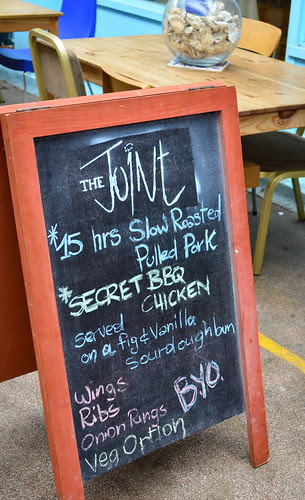 THE JOINT
*15 hrs Slow Roasted
Pulled Pork
*SECRET BBQ
CHICKEN
Served
on a fig & Vanilla
Sourdough bun
Wings
Ribs
Onion Rings
Veg Option
BYO.